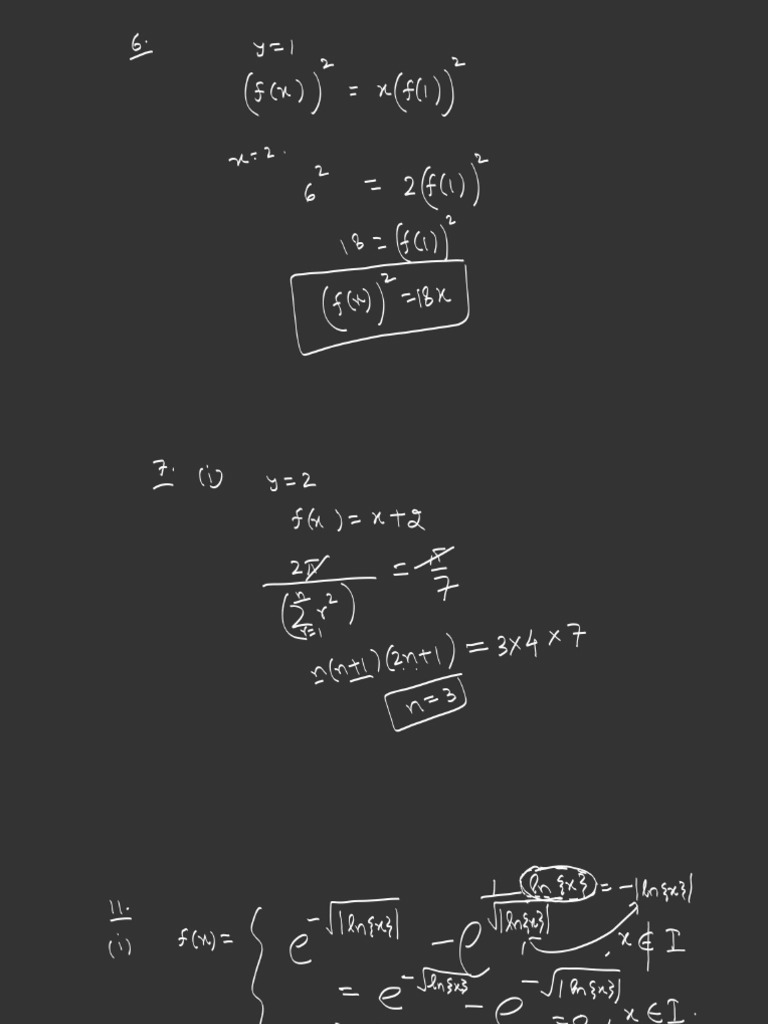 6.
y=1
(f(x))² = x(f(1))²
x=2.
6² = 2(f(1))²
18 = (f(1))²
(f(x))² = 18x
7. (i) y=2
f(x) = x+2
2π/(∑_{r=1}^{n} r²) = π/7
n(n+1)(2n+1) = 3×4×7
n=3
ln{x} = -|ln{x}|
11.
(i) f(x) = { e^{-√|ln{x}|} - e^{1/√|ln{x}|} , x∉I
= e^{-√|ln{x}|} - e^{-√|ln{x}|}
=0, x∈I.